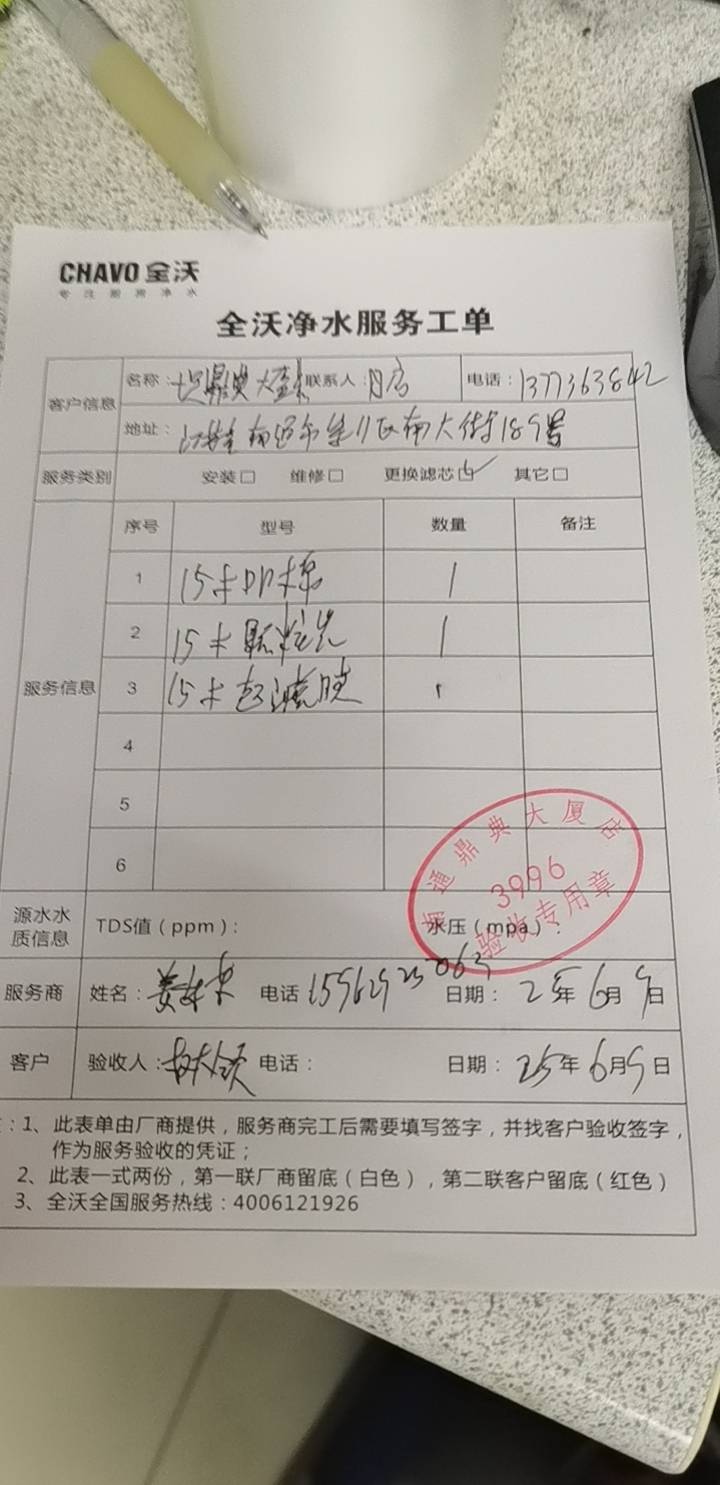 CHAVO 全沃
专注厨房净水
全沃净水服务工单
客户信息 名称：鼎典大 联系人：店 电话：
地址：江苏省南通市崇川区南大街189号
服务类别 安装□ 维修□ 更换滤芯☑ 其它□
序号 型号 数量 备注
服务信息
1 15寸PP棉 1
2 15寸颗粒炭 1
3 15寸超滤膜 1
4
5
6
南通鼎典大厦店
3996
验收专用章
源水水质信息 TDS值（ppm）： 水压（mpa）：
服务商 姓名：姜 电话 15962923063 日期：25年6月9日
客户 验收人： 电话： 日期：25年6月9日
：1、此表单由厂商提供，服务商完工后需要填写签字，并找客户验收签字，
作为服务验收的凭证；
2、此表一式两份，第一联厂商留底（白色），第二联客户留底（红色）
3、全沃全国服务热线：4006121926